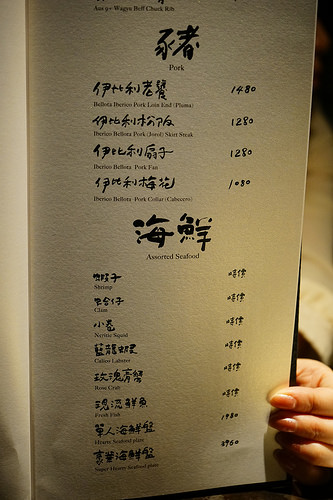 Aus 9+ Wagyu Beff Chuck Rib
豬
Pork
伊比利老饕 1480
Bellota Iberico Pork Loin End (Pluma)
伊比利松阪 1280
Iberico Bellota Pork (Jowl) Skirt Steak
伊比利扇子 1280
Iberico Bellota Pork Fan
伊比利梅花 1080
Iberico Bellota Pork Collar (Cabecero)
海鮮
Assorted Seafood
蝦子 時價
Shrimp
蛤仔 時價
Clam
小卷 時價
Neritic Squid
藍龍蝦 時價
Calico Lobster
玫瑰青蟹 時價
Rose Crab
現流鮮魚 時價
Fresh Fish
單人海鮮盤 1980
Hearty Seafood plate
豪華海鮮盤 3960
Super Hearty Seafood plate